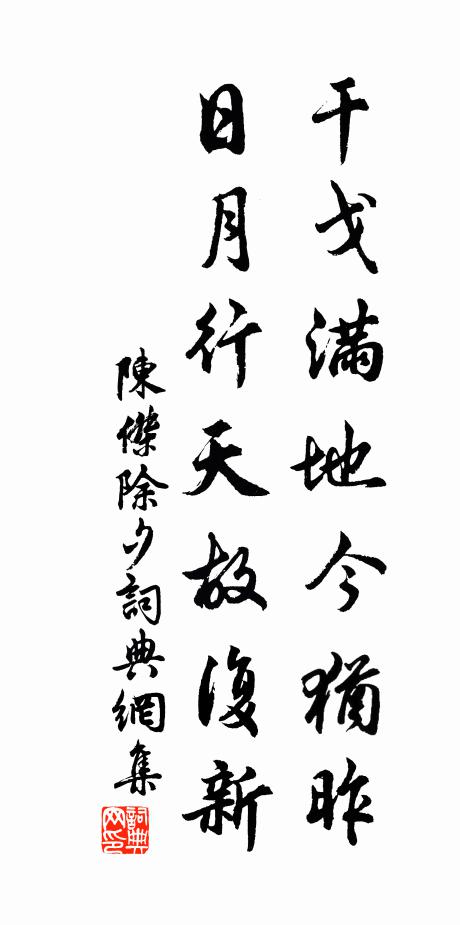 干戈滿地今猶昨
日月行天故復新
陳傑除夕詞典網集
詞典網印